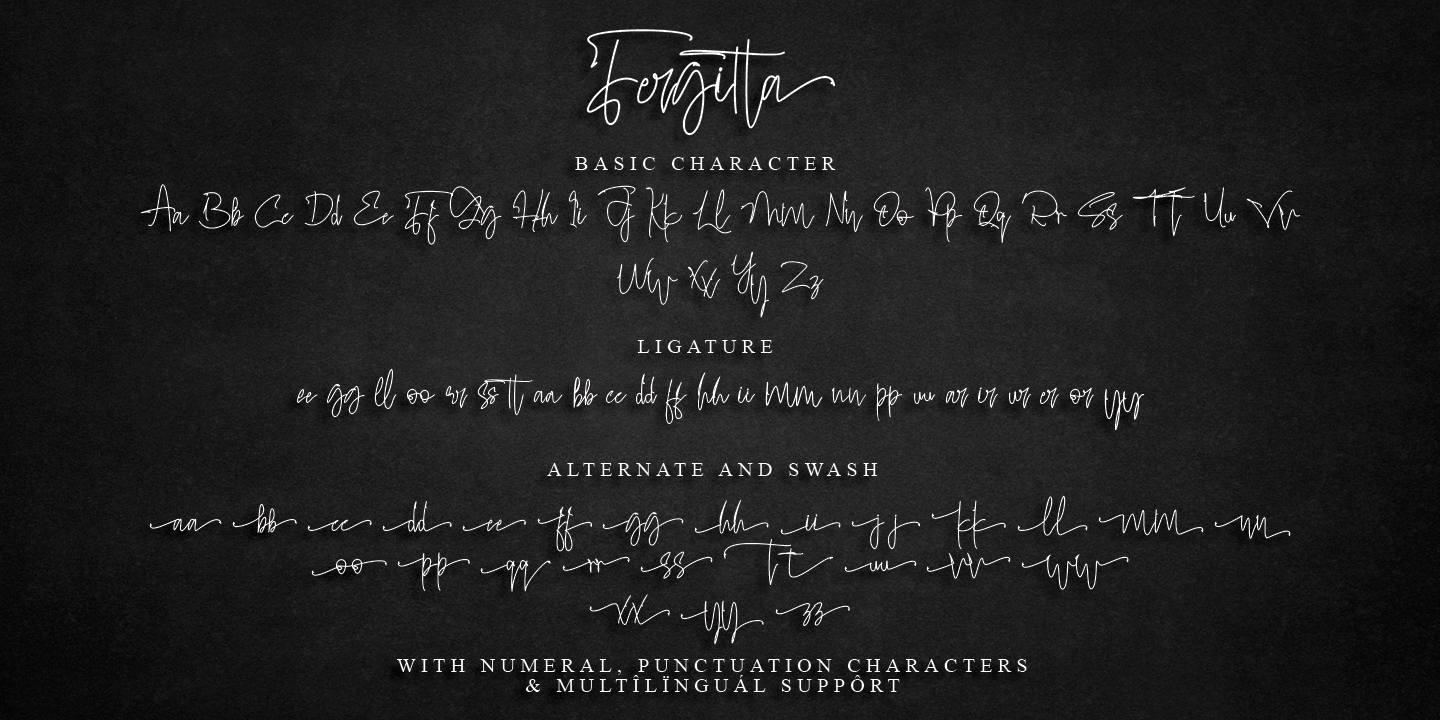 Fergitta
BASIC CHARACTER
Aa Bb Cc Dd Ee Ff Gg Hh Ii Jj Kk Ll Mm Nn Oo Pp Qq Rr Ss Tt Uu Vv
Ww Xx Yy Zz
LIGATURE
ee gg ll oo rr ss tt aa bb cc dd ff hh ii mm nn pp uu ar ir ur er or yy
ALTERNATE AND SWASH
aa bb cc dd ee ff gg hh ii jj kk ll mm nn
oo pp qq rr ss tt uu vv ww
xx yy zz
WITH NUMERAL, PUNCTUATION CHARACTERS
& MULTÎLÏNGUÁL SUPPÔRT